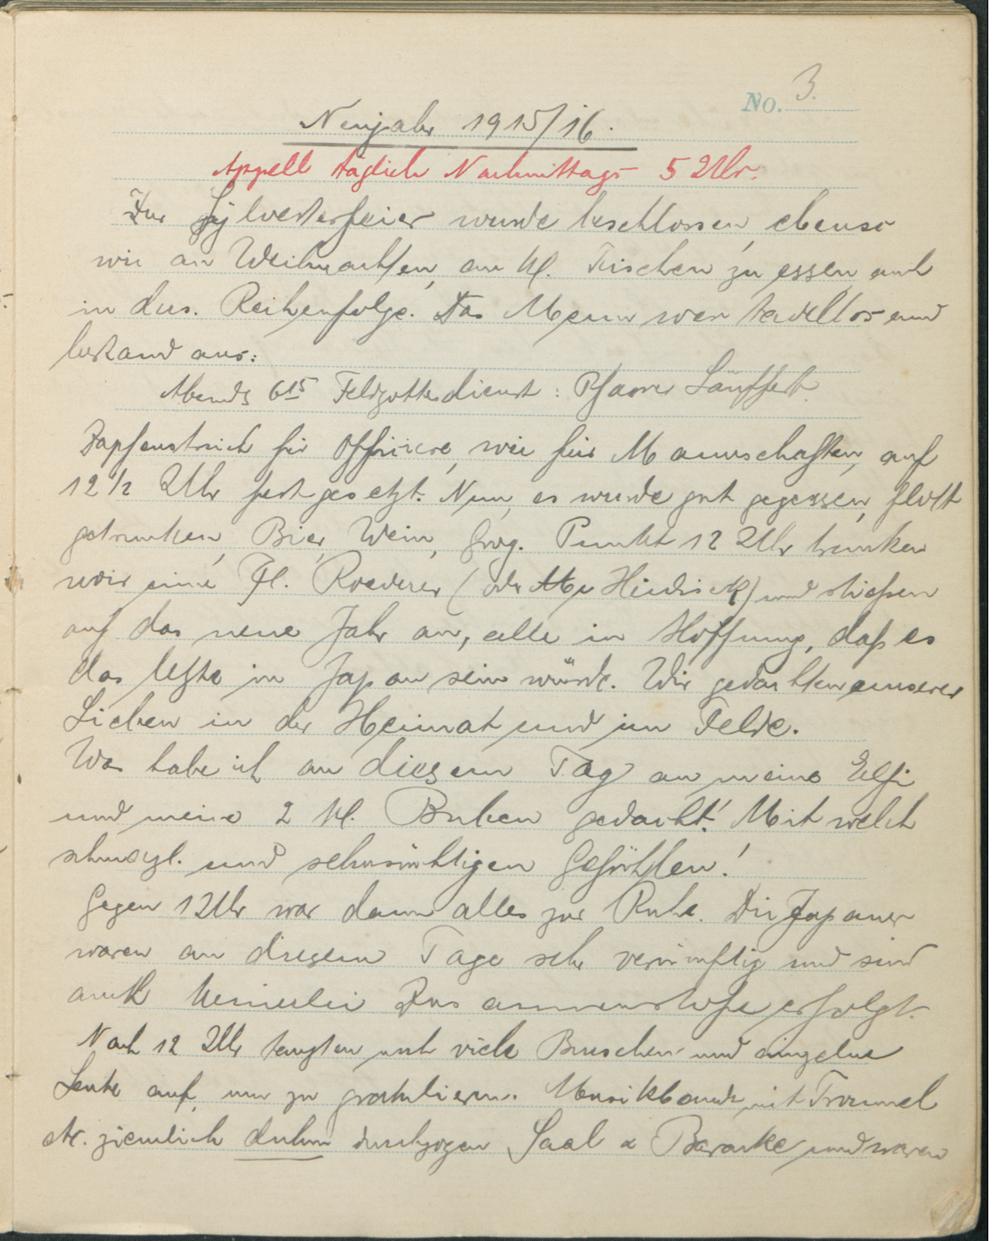 No. 3.
Neujahr 1915/16.
Appell täglich Nachmittags 5 Uhr.
Zur Sylvesterfeier wurde beschlossen, ebenso
wie an Weihnachten, an kl. Tischen zu essen, auch
in ders. Reihenfolge. Das Menu war tadellos und
bestand aus:
Abends 6 15 Feldgottesdienst: Pfarrer
Zapfenstreich für Offiziere, wie für Mannschaften, auf
12 1/2 Uhr festgesetzt. Nun, es wurde gut gegessen, flott
getrunken, Bier, Wein, Grog. Punkt 12 Uhr tranken
wir eine Fl. Roederer (oder und stießen
auf das neue Jahr an, alle in Hoffnung, daß es
das letzte in Japan sein würde. Wir gedachten unserer
Lieben in der Heimat und im Felde.
Was habe ich an diesem Tag an meine Elsi
und meine 2 kl. Buben gedacht! Mit welch
schmerzl. und sehnsüchtigen Gefühlen!
Gegen 1 Uhr war dann alles zur Ruhe. Die Japaner
waren an diesem Tage sehr vernünftig und sind
auch keinerlei Zusammenstöße erfolgt.
Nach 12 Uhr tauchten noch viele Burschen und einzelne
Leute auf, um zu gratulieren. Musikbande mit Trommel
etr. ziemlich duhn durchzogen Saal & Baracke und waren